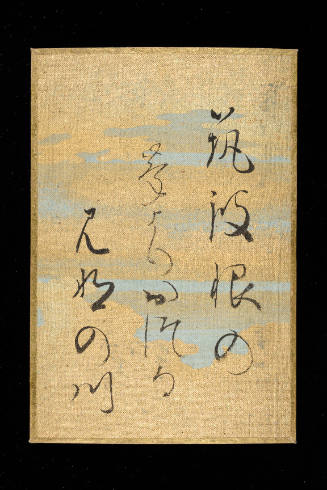 筑波根の
峯より おつる
みなの川